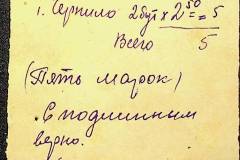 1. Чернило 2 бут × 2 50 = 5
Всего 5
(Пять марок)
С подлинным
верно.